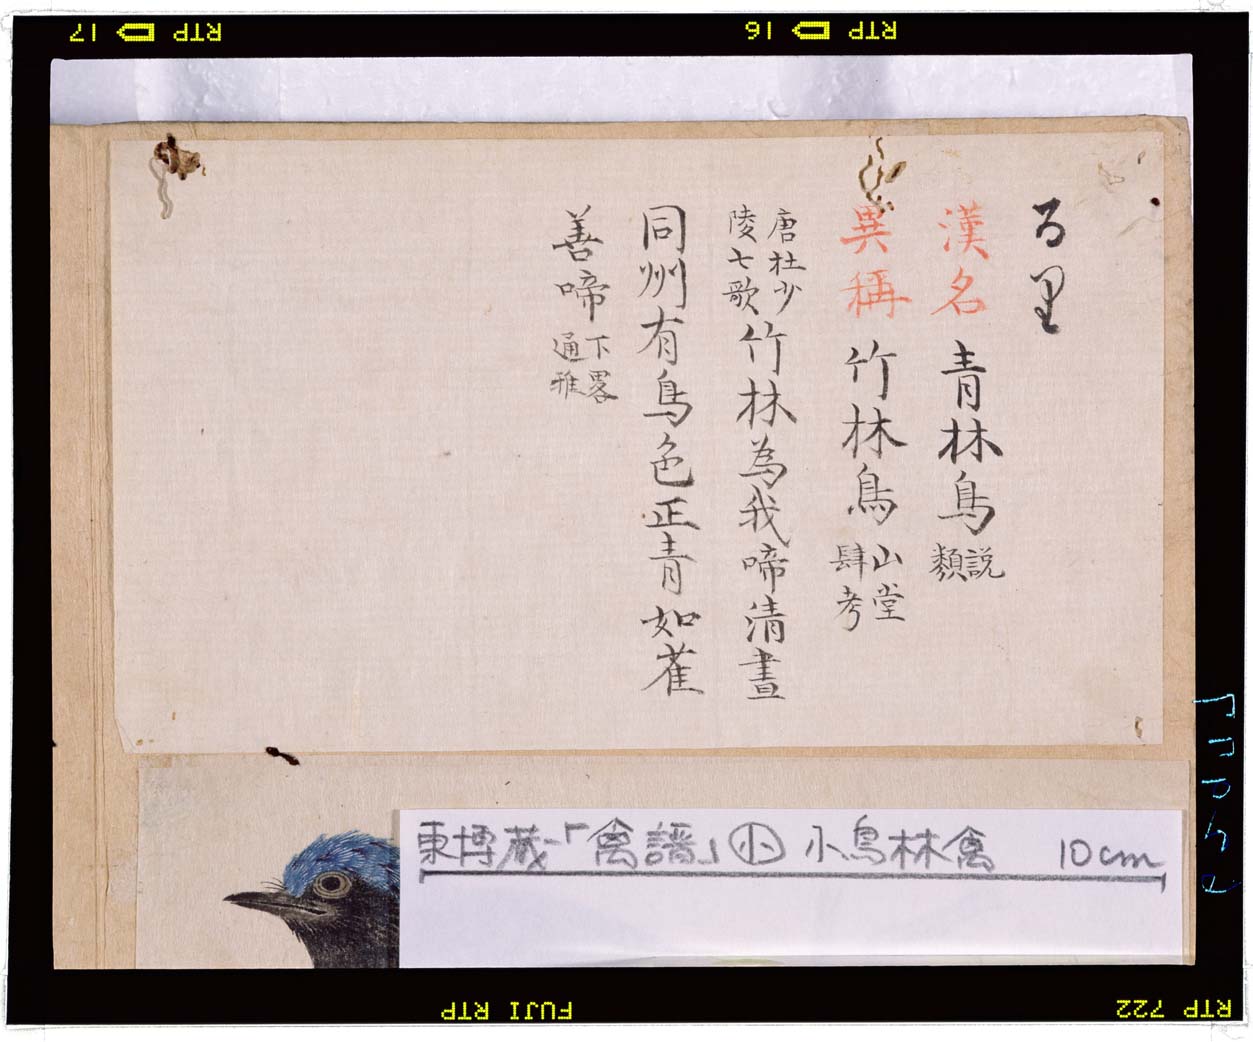 RTP 17
RTP 16
るり
漢名 青林鳥 説類
異稱 竹林鳥 山堂肆考
唐杜少陵七歌 竹林為我啼清晝
同州有鳥色正青如雀
善啼 下畧 通雅
東博蔵-「禽譜」㊁ 小鳥林禽 10cm
FUJI RTP
RTP 722